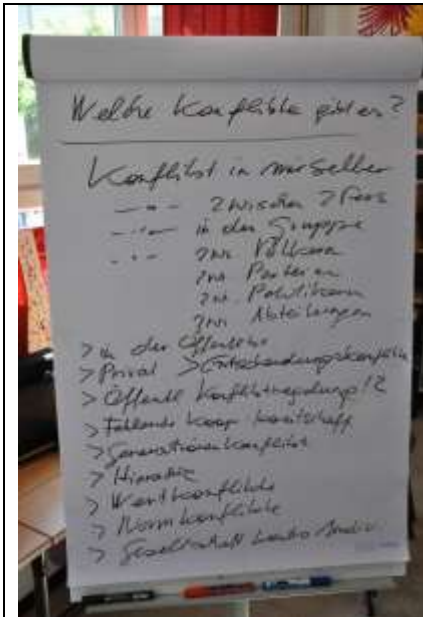 Welche Konflikte gibt es?
Konflikt in mir selber
— " — zwischen 2 Pers
— " — in der Gruppe
— " — zwi. Völkern
zwi. Parteien
zwi. Politikern
zwi. Abteilungen
> in der Öffentlichk
> Privat > Entscheidungskonflikte
> Öffentl Konfliktregelung!?
> Fehlende Koop bereitschaft
> Generationenkonflikt
> Hierarchie
> Wertkonflikte
> Normkonflikte
> Gesellschaft